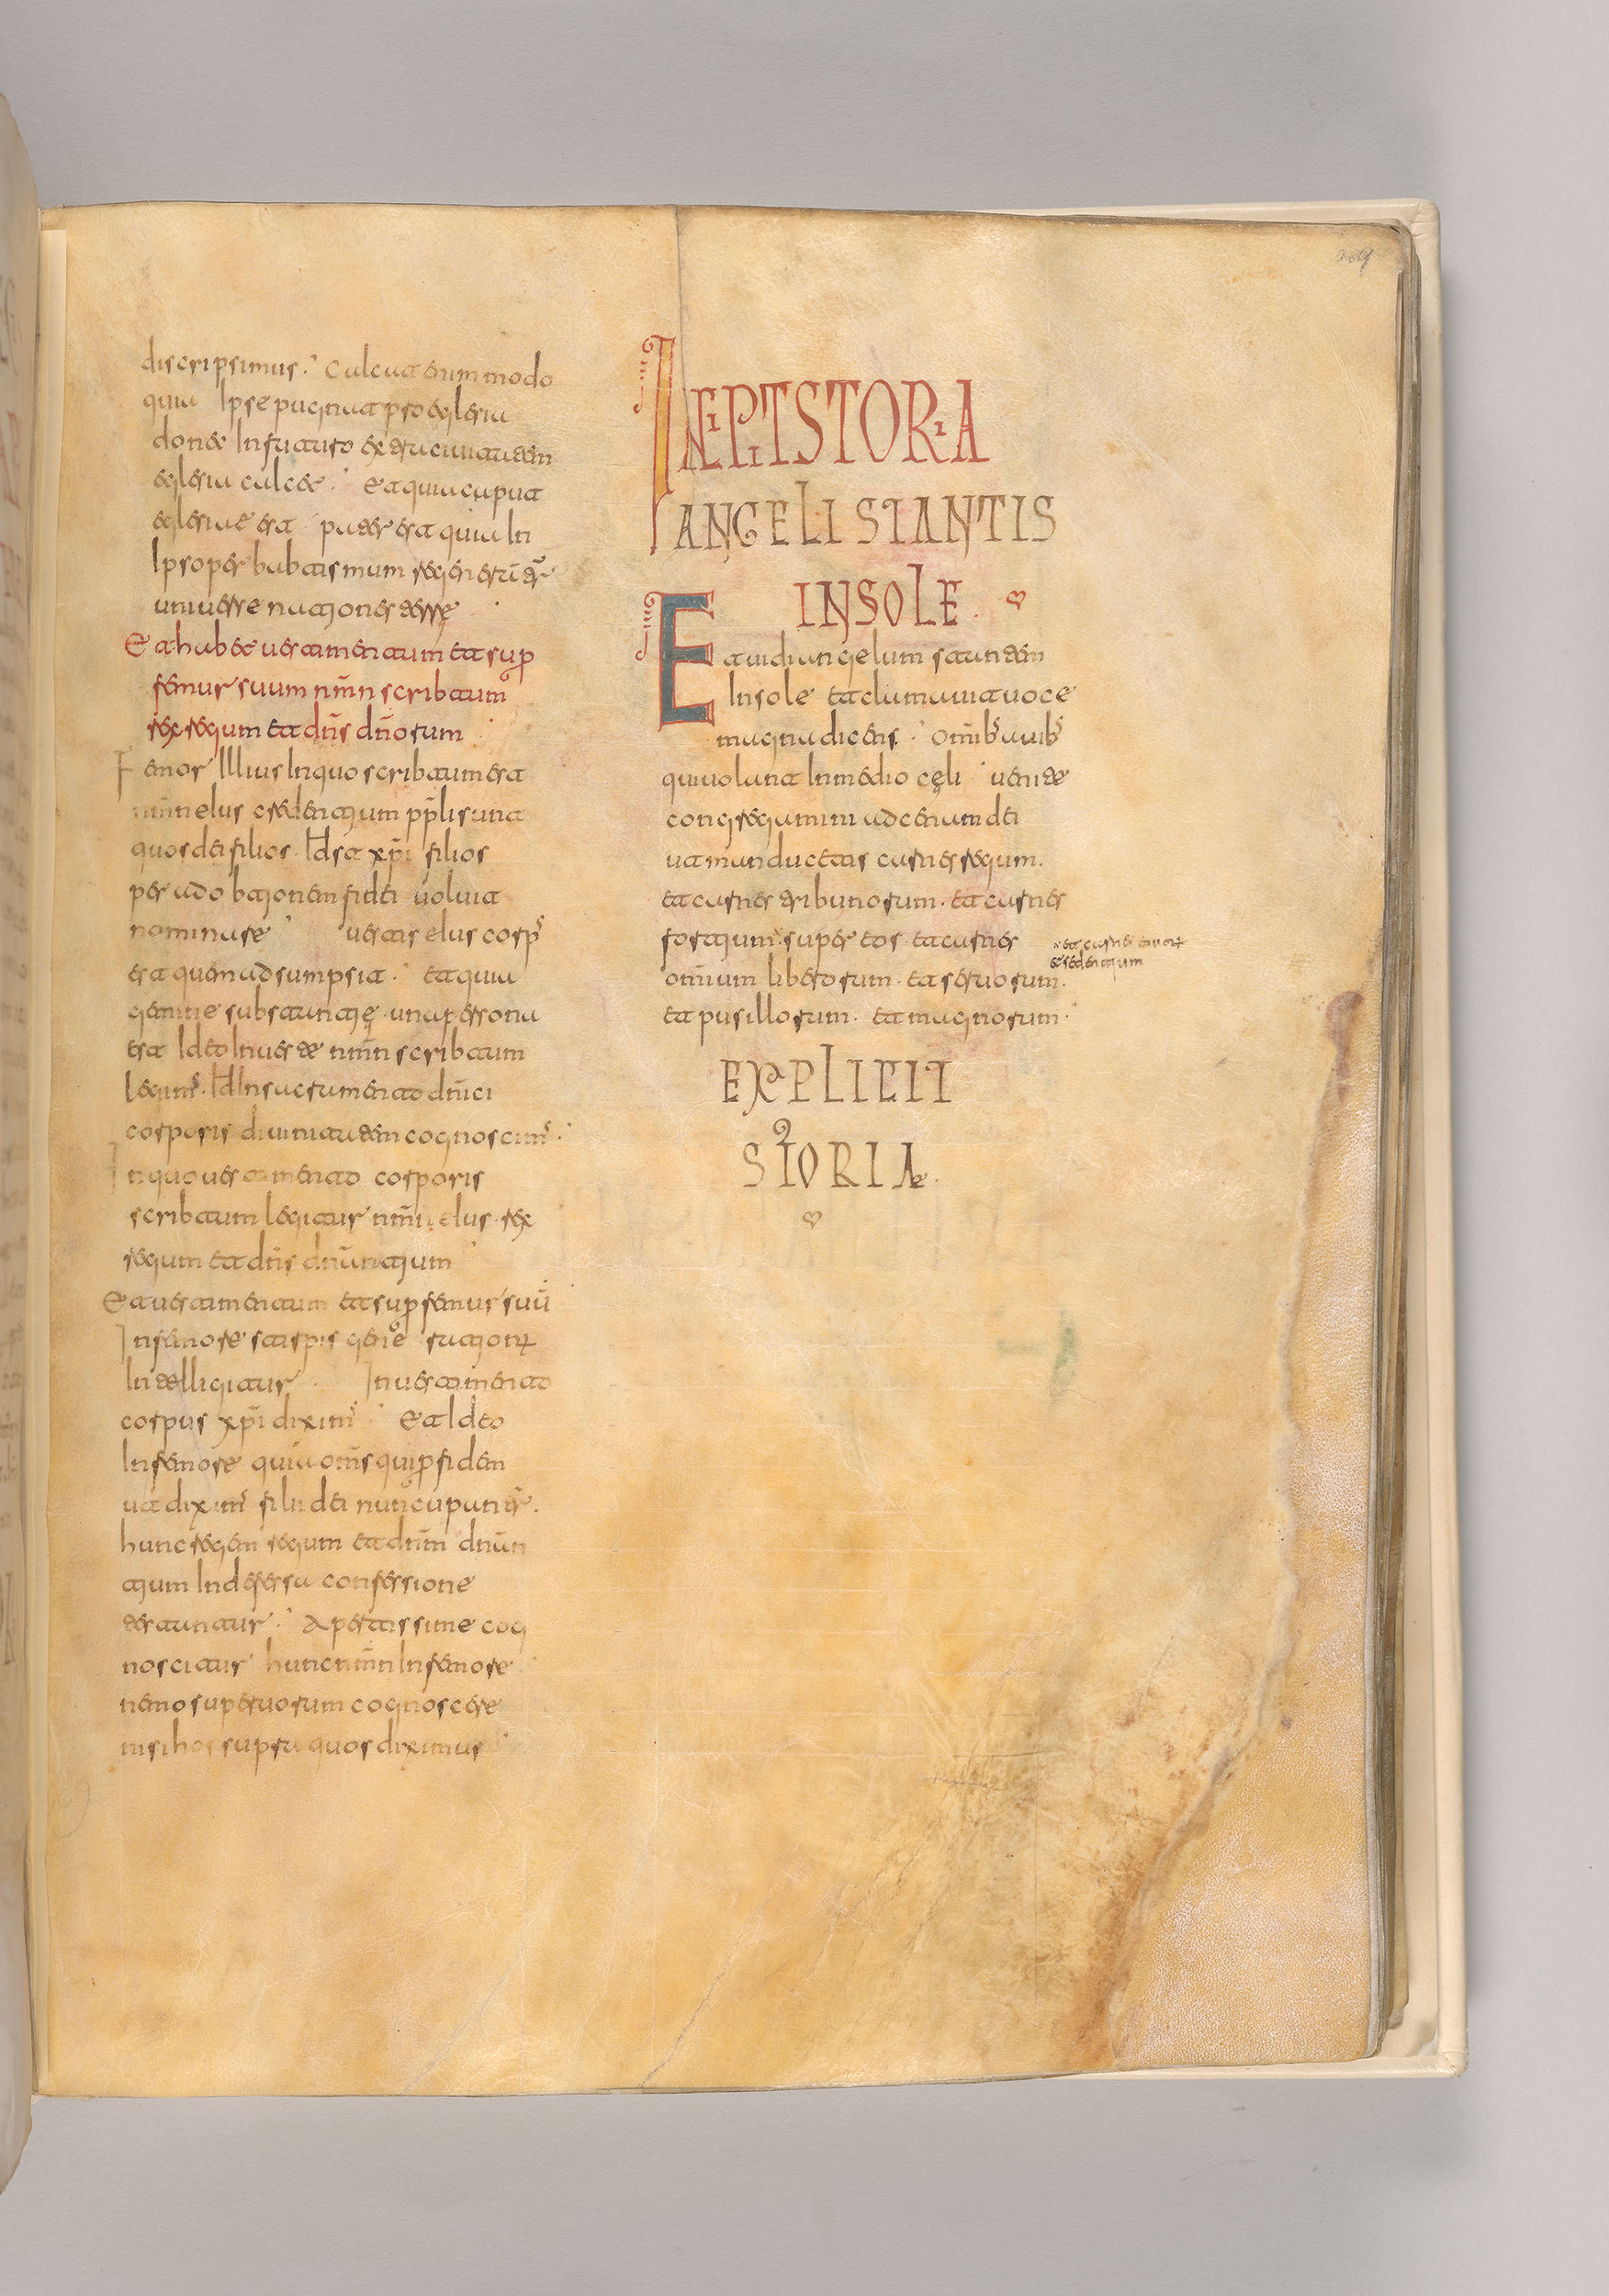 discripsimus. Calcat enim modo
quia Ipse pugnat pro eglesia
donec In futuro extra ciuitatem
eglesia calcet. et quia caput
eglesiae est pater est quia In
Ipso per babtismum regeneratr̄
uniuerse nationes terre.
Et habet uestimentum et sup
femur suum nm̄n scribtum
rex regum et dn̄s dn̄orum
Femor Illius In quo scribtum est
nm̄n eius credentium pp̄li sunt
quos dei filios. Id st xp̄i filios
per adobtionem fidei uoluit
nominare uestis eius corps̄
est quem adsumpsit. et quia
gemine substantię una persona
est Ideo In ueste nm̄n scribtum
legims̄. Id In sacramento dn̄ici
corporis diuinitatem cognoscims̄.
In quo uestimento corporis
scribtum legitur nm̄n eius rex
regum et dn̄s dn̄antium
Et uestimentum et sup femur suū
In femore stirpis gene rationis
Intelligitur In uestimento
corpus xp̄i dixims̄ Et Ideo
In femore quia om̄s qui p fidem
ut dixims̄ filii dei nuncupantr̄.
hunc regem regum et dn̄m dn̄an
tium Indefessa confessione
testantur. Apertissime cog
noscitur hunc nm̄n In femore
nemo superuorum cognoscere
nisi hos supra quos diximus
INCIPIT STORIA
ANGELI STANTIS
IN SOLE
Et uidi angelum stantem
In sole et clamauit uoce
magna dicens. om̄ibs auibs
qui uolant In medio cęli uenite
congregamini ad cenam dei
ut manducetis carnes regum.
et carnes tribunorum. et carnes
fortium. super eos. et carnes
et carnes equor
et sedentium
om̄ium liberorum. et seruorum.
et pusillorum. et magnorum.
EXPLICIT
STORIAe.